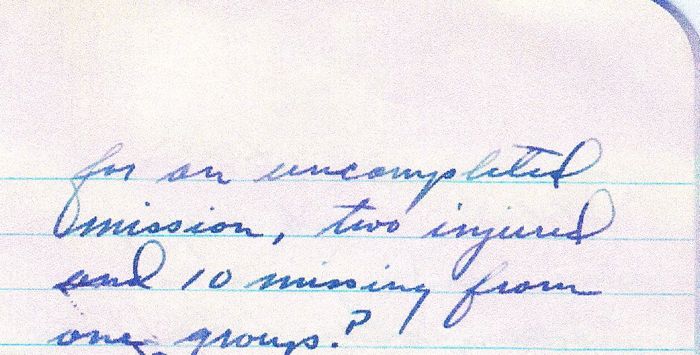 for an uncompleted
mission, two injured
and 10 missing from
one group.?